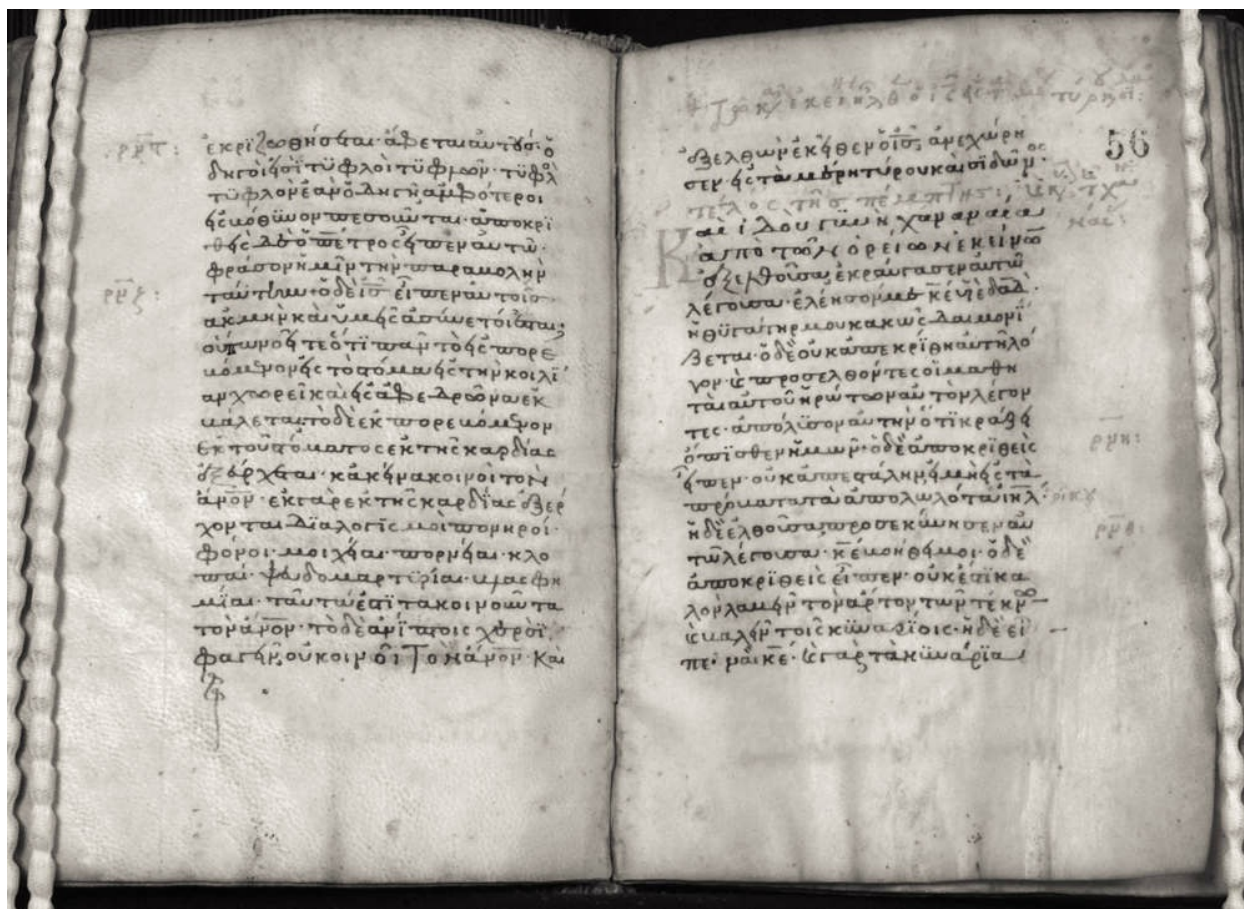 ἐκριζωθήσεται· ἄφεται αὐτούς· ὁ
δηγοί εἰσϊ τϋφλοὶ τϋφλῶν· τϋφλὸ
τϋφλὸν ἐὰν ὁδηγῆ ἀμφότεροι
εἰς βόθϋνον πεσοῦνται· ἀποκρι
θεὶς δὲ ὁ πέτρος εἶπεν αὐτῶ·
φράσον ἡμῖν τὴν παραβολὴν
ταύτην· ὁ δὲ ῑς̄ εἶπεν αὐτοῖς
ἀκμὴν καὶ ὑμεῖς ἀσύνετοί ἐσται;
οὔπω νοεῖτε ὅτϊ πᾶν τὸ εἰσπορε
υόμενον εἰς τὸ στόμα εἰς τὴν κοιλί
αν χωρεῖ καὶ εἰς ἀφεδρῶνα ἐκ
βάλεται· τὸ δὲ ἐκπορευόμενον
ἐκ τοῦ στόματος ἐκ τῆς καρδίας
ἐξέρχεται· κἀκεῖνα κοινοῖ τὸν
ἄν̄ο̄ν̄· ἐκ γὰρ ἐκ τῆς καρδίας ἐξέρ
χονται διαλογισμοὶ πονηροί·
φόνοι· μοιχεῖαι· πορνεῖαι· κλο
παί· ψευδομαρτυρίαι· βλασφη
μίαι· ταῦτά ἐστϊ τὰ κοινοῦντα
τὸν ἄν̄ο̄ν̄· τὸ δὲ ἀνίπτοις χερσὶ
φαγεῖν, οὐ κοινοῖ τὸν ἄν̄ο̄ν̄· Καὶ
56
ἐξελθὼν ἐκεῖθεν ὁ ῑς̄ ἀνεχώρη
σεν εἰς τὰ μέρη τύρου καὶ σιδῶνος·
τέλος τῆς πέμπτης·
Καὶ ἰδοὺ γϋνὴ χαναναία
ἀπὸ τῶν ὁρείων ἐκείνων
ἐξελθοῦσα, ἐκραύγασεν αὐτῶ
λέγουσα· ἐλέησόν με κ̄ε̄ ῡε̄ δᾱδ̄·
ἡ θϋγάτηρ μου κακῶς δαιμονΐ
ζεται· ὁ δὲ οὐκ ἀπεκρίθη αὐτῆ λό
γον· καὶ προσελθόντες οἱ μαθη
ταὶ αὐτοῦ ἠρώτων αὐτὸν λέγον
τες· ἀπόλϋσον αὐτὴν ὅτι κράζει
ὄπισθεν ἡμῶν· ὁ δὲ ἀποκριθεὶς
εἶπεν· οὐκ ἀπεστάλην εἰ μὴ εἰς τὰ
πρόβατα τὰ ἀπολωλότα ῑη̄λ̄·
ἡ δὲ ἐλθοῦσα προσεκύνησεν αὐ
τῶ λέγουσα· κ̄ε̄ βοήθει μοι· ὁ δὲ
ἀποκριθεὶς εἶπεν· οὐκ ἔστϊ κα
λὸν λαβεῖν τὸν ἄρτον τῶν τέκνων
καὶ βαλεῖν τοῖς κϋναρίοις· ἡ δὲ εἶ
πε· ναὶ κ̄ε̄· καὶ γὰρ τὰ κϋνάρϊα